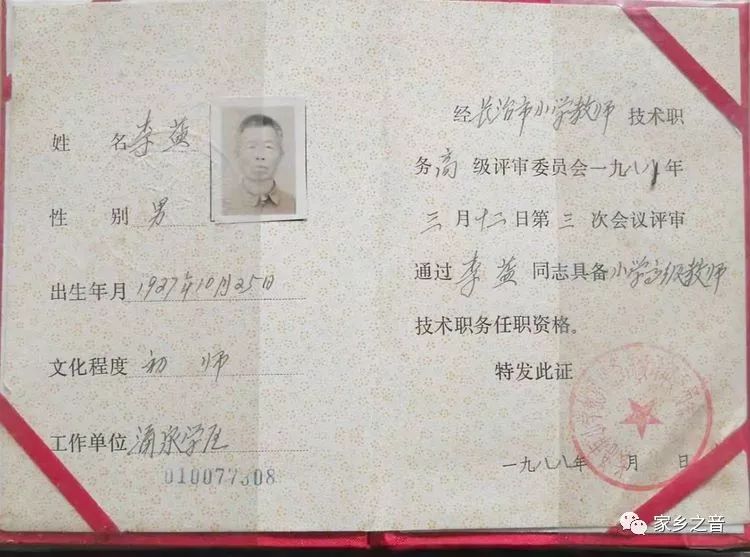 姓 名 李益
性 别 男
出生年月 1927年10月25日
文化程度 初 师
工作单位 涌泉学区
010077308
经 长治市小学教师 技术职
务 高 级评审委员会一九八八年
三月十二日第三次会议评审
通过 李益 同志具备 小学高级教师
技术职务任职资格。
特发此证
一九八八年 月 日
家乡之音